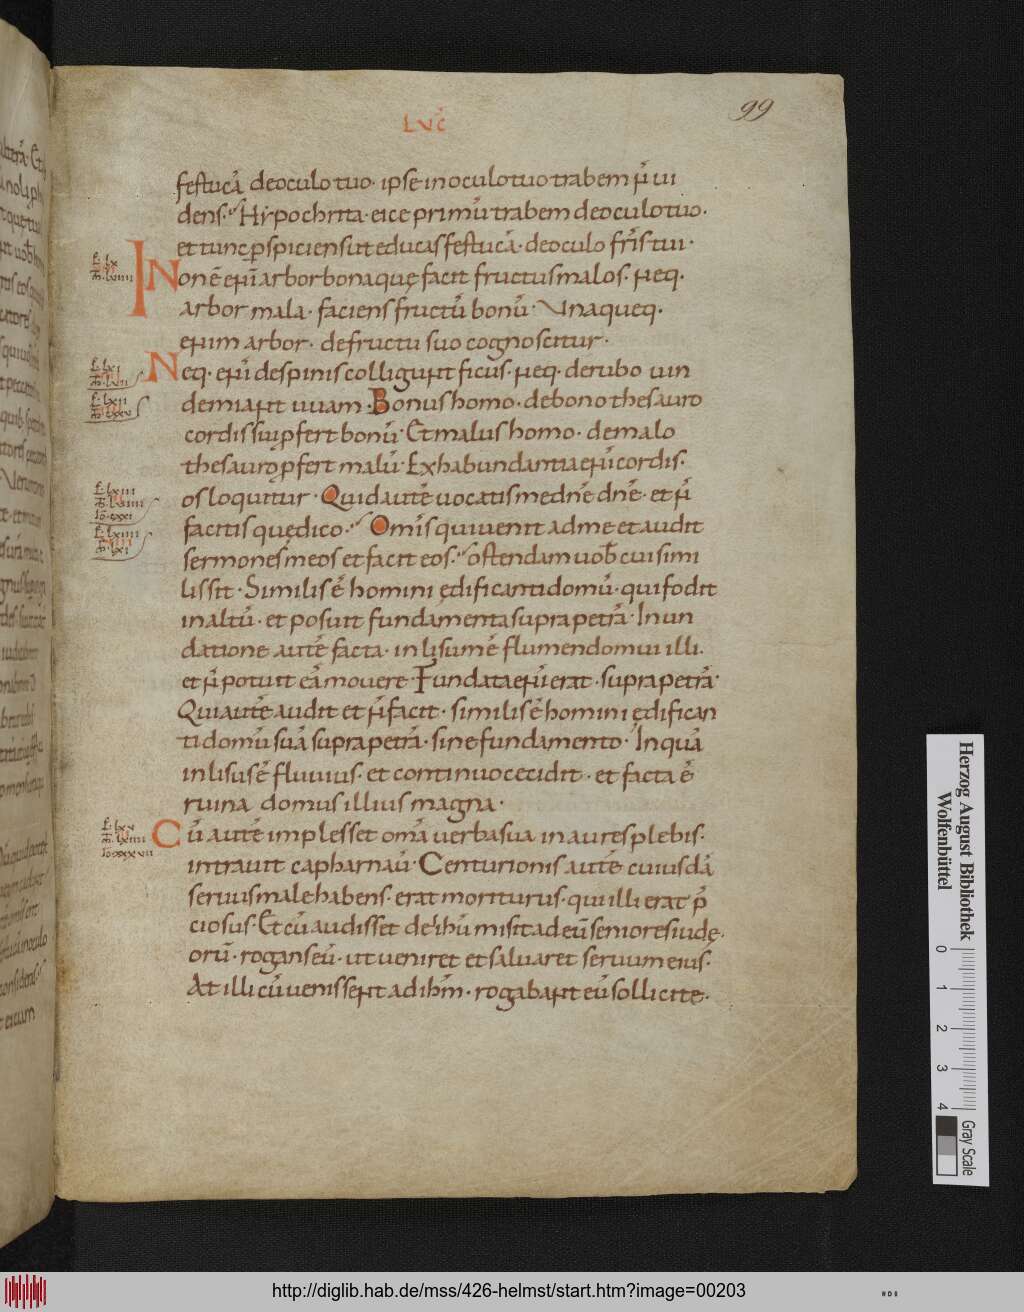 99
LVC̄
festucā deoculo tuo· ipse in oculo tuo trabem n̄ ui
dens· Hypochrita· eice primū trabem deoculo tuo·
et tunc pspicies ut educas festucā· deoculo fr̄is tui·
Non ē eni arbor bona quę facit fructus malos· neq·
arbor mala· faciens fructū bonū· Vnaqueq·
enim arbor· defructu suo cognoscitur·
Neq· eni despinis colligunt ficus· neq· derubo uin
demiant uuam· Bonus homo· debono thesauro
cordis sui pfert bonū· Et malus homo· demalo
thesauro pfert malū· Ex habundantia eni cordis·
os loquitur· Quid autē uocatis me dn̄e dn̄e· et n̄
facitis quę dico· Om̄is qui uenit ad me et audit
sermones meos et facit eos· ostendam uob̄ cui simi
lis sit· Similis ē homini ędificanti domū· qui fodit
in altū· et posuit fundamenta supra petrā· Inun
datione autē facta· inlisum ē flumen domui illi·
et n̄ potuit eā mouere· Fundata eni erat· supra petrā·
Qui autē audit et n̄ facit· similis ē homini ędifican
ti domū suā supra petrā· sine fundamento· In quā
inlisus ē fluuius· et continuo cecidit· et facta ē
ruina domus illius magna·
Cū autē implesset om̄a uerba sua in aures plebis·
intrauit capharnaū· Centurionis autē cuiusdā
seruus male habens· erat moriturus· qui illi erat p̄
ciosus· Et cū audisset de ih̄u misit ad eū seniores iudę·
orū· rogans eū· ut ueniret et saluaret seruum eius·
At illi cū uenissent ad ih̄m· rogabant eū sollicite·
Herzog August Bibliothek
Wolfenbüttel
0 1 2 3 4
Gray Scale
http://diglib.hab.de/mss/426-helmst/start.htm?image=00203